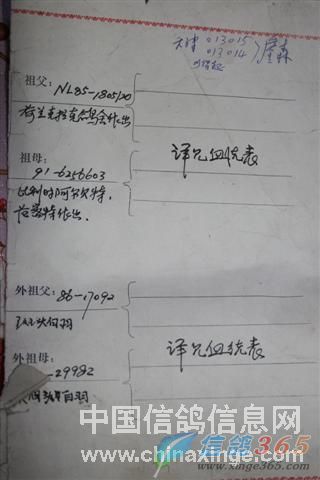 天津 013015
013014
祖父：NL85-1805120
荷兰克拉克鸽舍作出
祖母：
91-6256603
详见血统表
比利时阿尔贝特，
作出.
外祖父：86-17092
白羽
外祖母：
29982
详见血统表
白羽
中国信鸽信息网
www.chinaxinge.com
信鸽365
www.xinge365.com